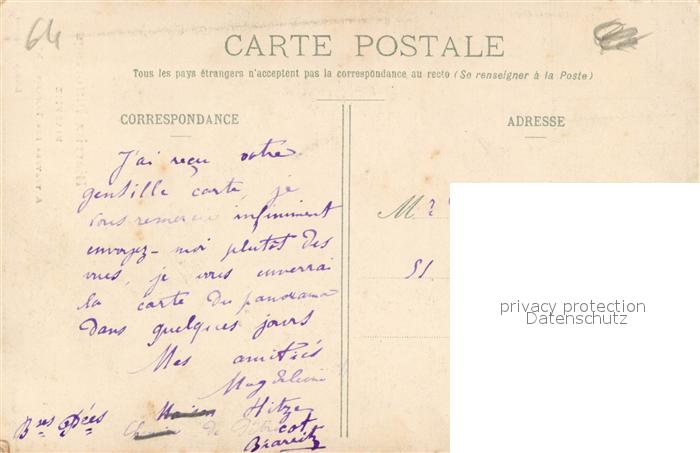 64
CARTE POSTALE
Tous les pays étrangers n'acceptent pas la correspondance au recto (Se renseigner à la Poste)
CORRESPONDANCE
ADRESSE
J'ai reçu votre
gentille carte, je
vous remercie infiniment
envoyez-moi plutot des
vues, je vous enverrai
la carte du panorama
dans quelques jours
Mes amitiés
Magdeleine
Hitze
Bses Pées
Maison
Chemin de
Biarritz
M
51
privacy protection
Datenschutz